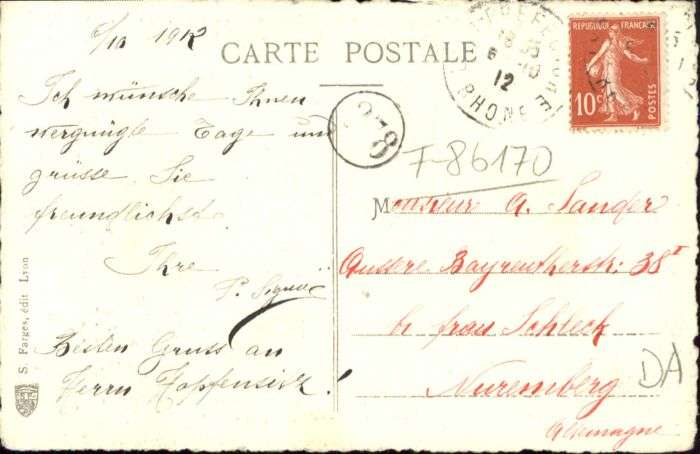 6/10 1912
CARTE POSTALE
Ich wünsche Ihnen
vergnügte Tage und
grüsse Sie
freundlichst
Ihre
P.
Besten Gruss an
Herrn
S. Farges, édit Lyon
378
RHONE
18 35
6 -10
12
REPUBLIQUE FRANÇAISE
10c
POSTES
F-86170
Monsieur A. Sander
Äussere Bayreutherstr: 38 I
b/ frau Schleck
Nuremberg
Allemagne
DA